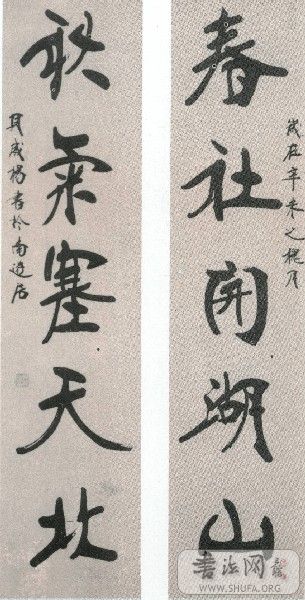 春社開湖山
歲在辛未之月
秋氣塞天地
楊書於南居
书法网
WWW.SHUFA.ORG